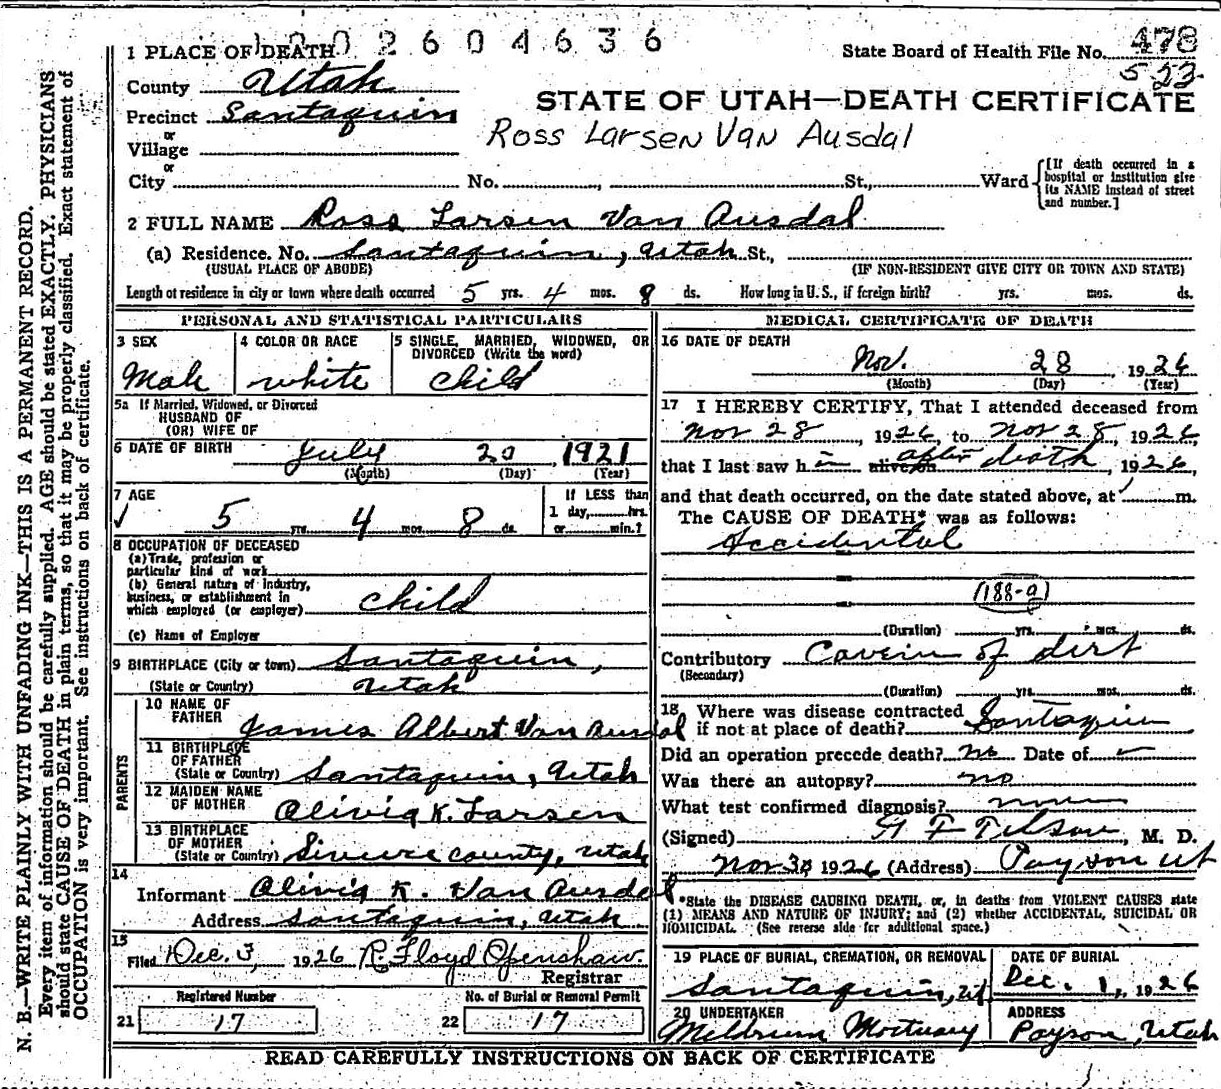 1202604636
1 PLACE OF DEATH State Board of Health File No. 478
553
County Utah
STATE OF UTAH—DEATH CERTIFICATE
Precinct Santaquin
Ross Larsen Van Ausdal
or
Village
or
City No. , St., Ward [If death occurred in a hospital or institution give its NAME instead of street and number.]
2 FULL NAME Ross Larsen Van Ausdal
(a) Residence. No. Santaquin, Utah St.,
(USUAL PLACE OF ABODE) (IF NON-RESIDENT GIVE CITY OR TOWN AND STATE)
Length of residence in city or town where death occurred 5 yrs. 4 mos. 8 ds. How long in U. S., if foreign birth? yrs. mos. ds.
PERSONAL AND STATISTICAL PARTICULARS
3 SEX 4 COLOR OR RACE 5 SINGLE, MARRIED, WIDOWED, OR
DIVORCED (Write the word)
Male white child
5a If Married, Widowed, or Divorced
HUSBAND OF
(OR) WIFE OF
6 DATE OF BIRTH July 20 1921
(Month) (Day) (Year)
7 AGE If LESS than
1 day, hrs.
5 yrs. 4 mos. 8 ds. or min.?
8 OCCUPATION OF DECEASED
(a) Trade, profession or
particular kind of work
(b) General nature of industry,
business, or establishment in
which employed (or employer) child
(c) Name of Employer
9 BIRTHPLACE (City or town) Santaquin,
(State or Country) Utah
PARENTS
10 NAME OF
FATHER James Albert Van Ausdal
11 BIRTHPLACE
OF FATHER
(State or Country) Santaquin, Utah
12 MAIDEN NAME
OF MOTHER Olivia K. Larsen
13 BIRTHPLACE
OF MOTHER
(State or Country) county, Utah
14
Informant Olivia K. Van Ausdal
Address Santaquin, Utah
15
Filed Dec. 3, 1926 R. Floyd Openshaw.
Registrar
Registered Number No. of Burial or Removal Permit
21 17 22 17
MEDICAL CERTIFICATE OF DEATH
16 DATE OF DEATH
Nov. 28, 1926
(Month) (Day) (Year)
17 I HEREBY CERTIFY, That I attended deceased from
Nov 28, 1926, to Nov 28, 1926,
that I last saw him alive on after death, 1926,
and that death occurred, on the date stated above, at m.
The CAUSE OF DEATH* was as follows:
Accidental
(188-a)
(Duration) yrs. mos. ds.
Contributory Cavein of dirt
(Secondary)
(Duration) yrs. mos. ds.
18 Where was disease contracted
if not at place of death? Santaquin
Did an operation precede death? no Date of
Was there an autopsy? no
What test confirmed diagnosis? none
(Signed) M. D.
Nov 30 1926 (Address) Payson Ut
*State the DISEASE CAUSING DEATH, or, in deaths from VIOLENT CAUSES state
(1) MEANS AND NATURE OF INJURY; and (2) whether ACCIDENTAL, SUICIDAL OR
HOMICIDAL. (See reverse side for additional space.)
19 PLACE OF BURIAL, CREMATION, OR REMOVAL DATE OF BURIAL
Santaquin, Ut Dec. 1, 1926
20 UNDERTAKER ADDRESS
Meldrum Mortuary Payson, Utah
READ CAREFULLY INSTRUCTIONS ON BACK OF CERTIFICATE
N. B.—WRITE PLAINLY WITH UNFADING INK—THIS IS A PERMANENT RECORD.
Every item of information should be carefully supplied. AGE should be stated EXACTLY. PHYSICIANS
should state CAUSE OF DEATH in plain terms, so that it may be properly classified. Exact statement of
OCCUPATION is very important. See instructions on back of certificate.